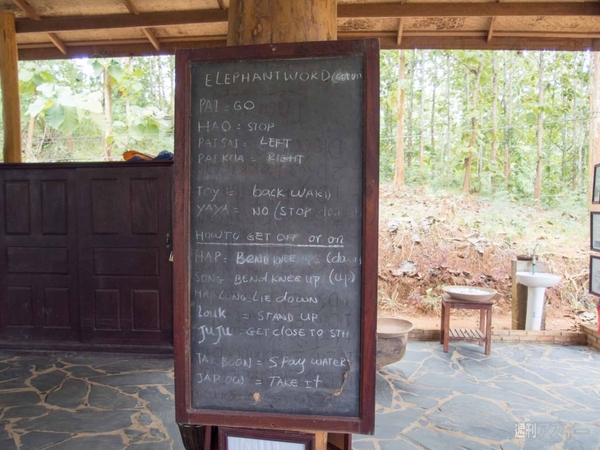 ELEPHANT WORD
PAI = GO
HAO = STOP
PAI SAI = LEFT
PAI KUA = RIGHT
TOY = back WARD
YAYA = NO (STOP
HOW TO GET OFF or on
HAP = BEND KNEE
SONG BEND KNEE UP (UP)
LUNG LIE down
LOUK = STAND UP
JUJU = GET CLOSE TO STH
BOON = SPAY WATER
JAP OW = TAKE it
週刊アスキー